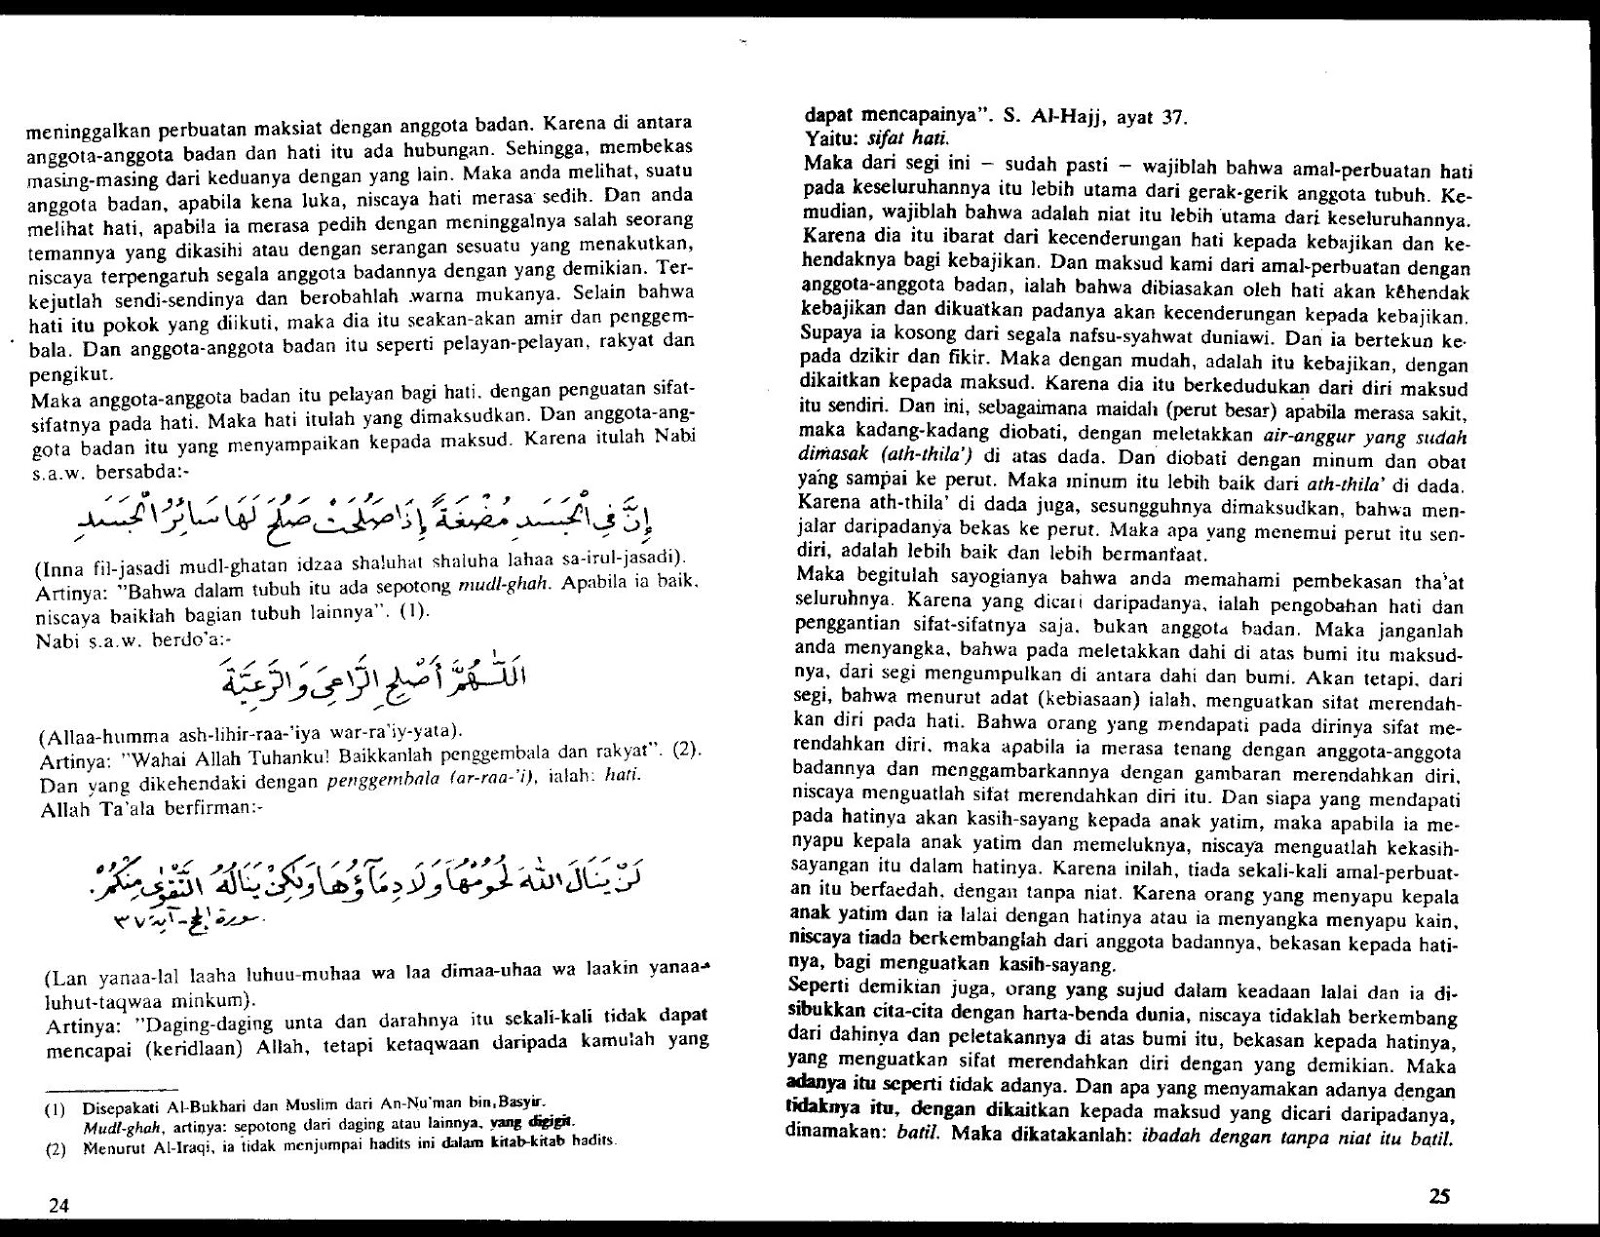 meninggalkan perbuatan maksiat dengan anggota badan. Karena di antara
anggota-anggota badan dan hati itu ada hubungan. Sehingga, membekas
masing-masing dari keduanya dengan yang lain. Maka anda melihat, suatu
anggota badan, apabila kena luka, niscaya hati merasa sedih. Dan anda
melihat hati, apabila ia merasa pedih dengan meninggalnya salah seorang
temannya yang dikasihi atau dengan serangan sesuatu yang menakutkan,
niscaya terpengaruh segala anggota badannya dengan yang demikian. Ter-
kejutlah sendi-sendinya dan berobahlah warna mukanya. Selain bahwa
hati itu pokok yang diikuti, maka dia itu seakan-akan amir dan penggem-
bala. Dan anggota-anggota badan itu seperti pelayan-pelayan, rakyat dan
pengikut.
Maka anggota-anggota badan itu pelayan bagi hati. dengan penguatan sifat-
sifatnya pada hati. Maka hati itulah yang dimaksudkan. Dan anggota-ang-
gota badan itu yang menyampaikan kepada maksud. Karena itulah Nabi
s.a.w. bersabda:-
إِنَّ فِي الْجَسَدِ مُضْغَةً إِذَا صَلُحَتْ صَلُحَ لَهَا سَائِرُ الْجَسَدِ
(Inna fil-jasadi mudl-ghatan idzaa shaluhat shaluha lahaa sa-irul-jasadi).
Artinya: "Bahwa dalam tubuh itu ada sepotong mudl-ghah. Apabila ia baik,
niscaya baiklah bagian tubuh lainnya". (1).
Nabi s.a.w. berdo'a:-
اَللّٰهُمَّ أَصْلِحِ الرَّاعِيَ وَالرَّعِيَّةَ
(Allaa-humma ash-lihir-raa-'iya war-ra'iy-yata).
Artinya: "Wahai Allah Tuhanku! Baikkanlah penggembala dan rakyat". (2).
Dan yang dikehendaki dengan penggembala (ar-raa-'i), ialah: hati.
Allah Ta'ala berfirman:-
لَنْ يَنَالَ اللّٰهَ لُحُوْمُهَا وَلَا دِمَآؤُهَا وَلٰكِنْ يَنَالُهُ التَّقْوٰى مِنْكُمْ.
سورة الحج - آية ٣٧
(Lan yanaa-lal laaha luhuu-muhaa wa laa dimaa-uhaa wa laakin yanaa-
luhut-taqwaa minkum).
Artinya: "Daging-daging unta dan darahnya itu sekali-kali tidak dapat
mencapai (keridlaan) Allah, tetapi ketaqwaan daripada kamulah yang
(1) Disepakati Al-Bukhari dan Muslim dari An-Nu'man bin Basyir.
Mudl-ghah, artinya: sepotong dari daging atau lainnya, yang digigit.
(2) Menurut Al-Iraqi, ia tidak menjumpai hadits ini dalam kitab-kitab hadits.
24
dapat mencapainya". S. Al-Hajj, ayat 37.
Yaitu: sifat hati.
Maka dari segi ini — sudah pasti — wajiblah bahwa amal-perbuatan hati
pada keseluruhannya itu lebih utama dari gerak-gerik anggota tubuh. Ke-
mudian, wajiblah bahwa adalah niat itu lebih utama dari keseluruhannya.
Karena dia itu ibarat dari kecenderungan hati kepada kebajikan dan ke-
hendaknya bagi kebajikan. Dan maksud kami dari amal-perbuatan dengan
anggota-anggota badan, ialah bahwa dibiasakan oleh hati akan kehendak
kebajikan dan dikuatkan padanya akan kecenderungan kepada kebajikan.
Supaya ia kosong dari segala nafsu-syahwat duniawi. Dan ia bertekun ke-
pada dzikir dan fikir. Maka dengan mudah, adalah itu kebajikan, dengan
dikaitkan kepada maksud. Karena dia itu berkedudukan dari diri maksud
itu sendiri. Dan ini, sebagaimana maidah (perut besar) apabila merasa sakit,
maka kadang-kadang diobati, dengan meletakkan air-anggur yang sudah
dimasak (ath-thila') di atas dada. Dan diobati dengan minum dan obat
yang sampai ke perut. Maka minum itu lebih baik dari ath-thila' di dada.
Karena ath-thila' di dada juga, sesungguhnya dimaksudkan, bahwa men-
jalar daripadanya bekas ke perut. Maka apa yang menemui perut itu sen-
diri, adalah lebih baik dan lebih bermanfaat.
Maka begitulah sayogianya bahwa anda memahami pembekasan tha'at
seluruhnya. Karena yang dicari daripadanya, ialah pengobahan hati dan
penggantian sifat-sifatnya saja. bukan anggota badan. Maka janganlah
anda menyangka, bahwa pada meletakkan dahi di atas bumi itu maksud-
nya, dari segi mengumpulkan di antara dahi dan bumi. Akan tetapi, dari
segi, bahwa menurut adat (kebiasaan) ialah, menguatkan sifat merendah-
kan diri pada hati. Bahwa orang yang mendapati pada dirinya sifat me-
rendahkan diri, maka apabila ia merasa tenang dengan anggota-anggota
badannya dan menggambarkannya dengan gambaran merendahkan diri,
niscaya menguatlah sifat merendahkan diri itu. Dan siapa yang mendapati
pada hatinya akan kasih-sayang kepada anak yatim, maka apabila ia me-
nyapu kepala anak yatim dan memeluknya, niscaya menguatlah kekasih-
sayangan itu dalam hatinya. Karena inilah, tiada sekali-kali amal-perbuat-
an itu berfaedah, dengan tanpa niat. Karena orang yang menyapu kepala
anak yatim dan ia lalai dengan hatinya atau ia menyangka menyapu kain,
niscaya tiada berkembanglah dari anggota badannya, bekasan kepada hati-
nya, bagi menguatkan kasih-sayang.
Seperti demikian juga, orang yang sujud dalam keadaan lalai dan ia di-
sibukkan cita-cita dengan harta-benda dunia, niscaya tidaklah berkembang
dari dahinya dan peletakannya di atas bumi itu, bekasan kepada hatinya,
yang menguatkan sifat merendahkan diri dengan yang demikian. Maka
adanya itu seperti tidak adanya. Dan apa yang menyamakan adanya dengan
tidaknya itu, dengan dikaitkan kepada maksud yang dicari daripadanya,
dinamakan: batil. Maka dikatakanlah: ibadah dengan tanpa niat itu batil.
25